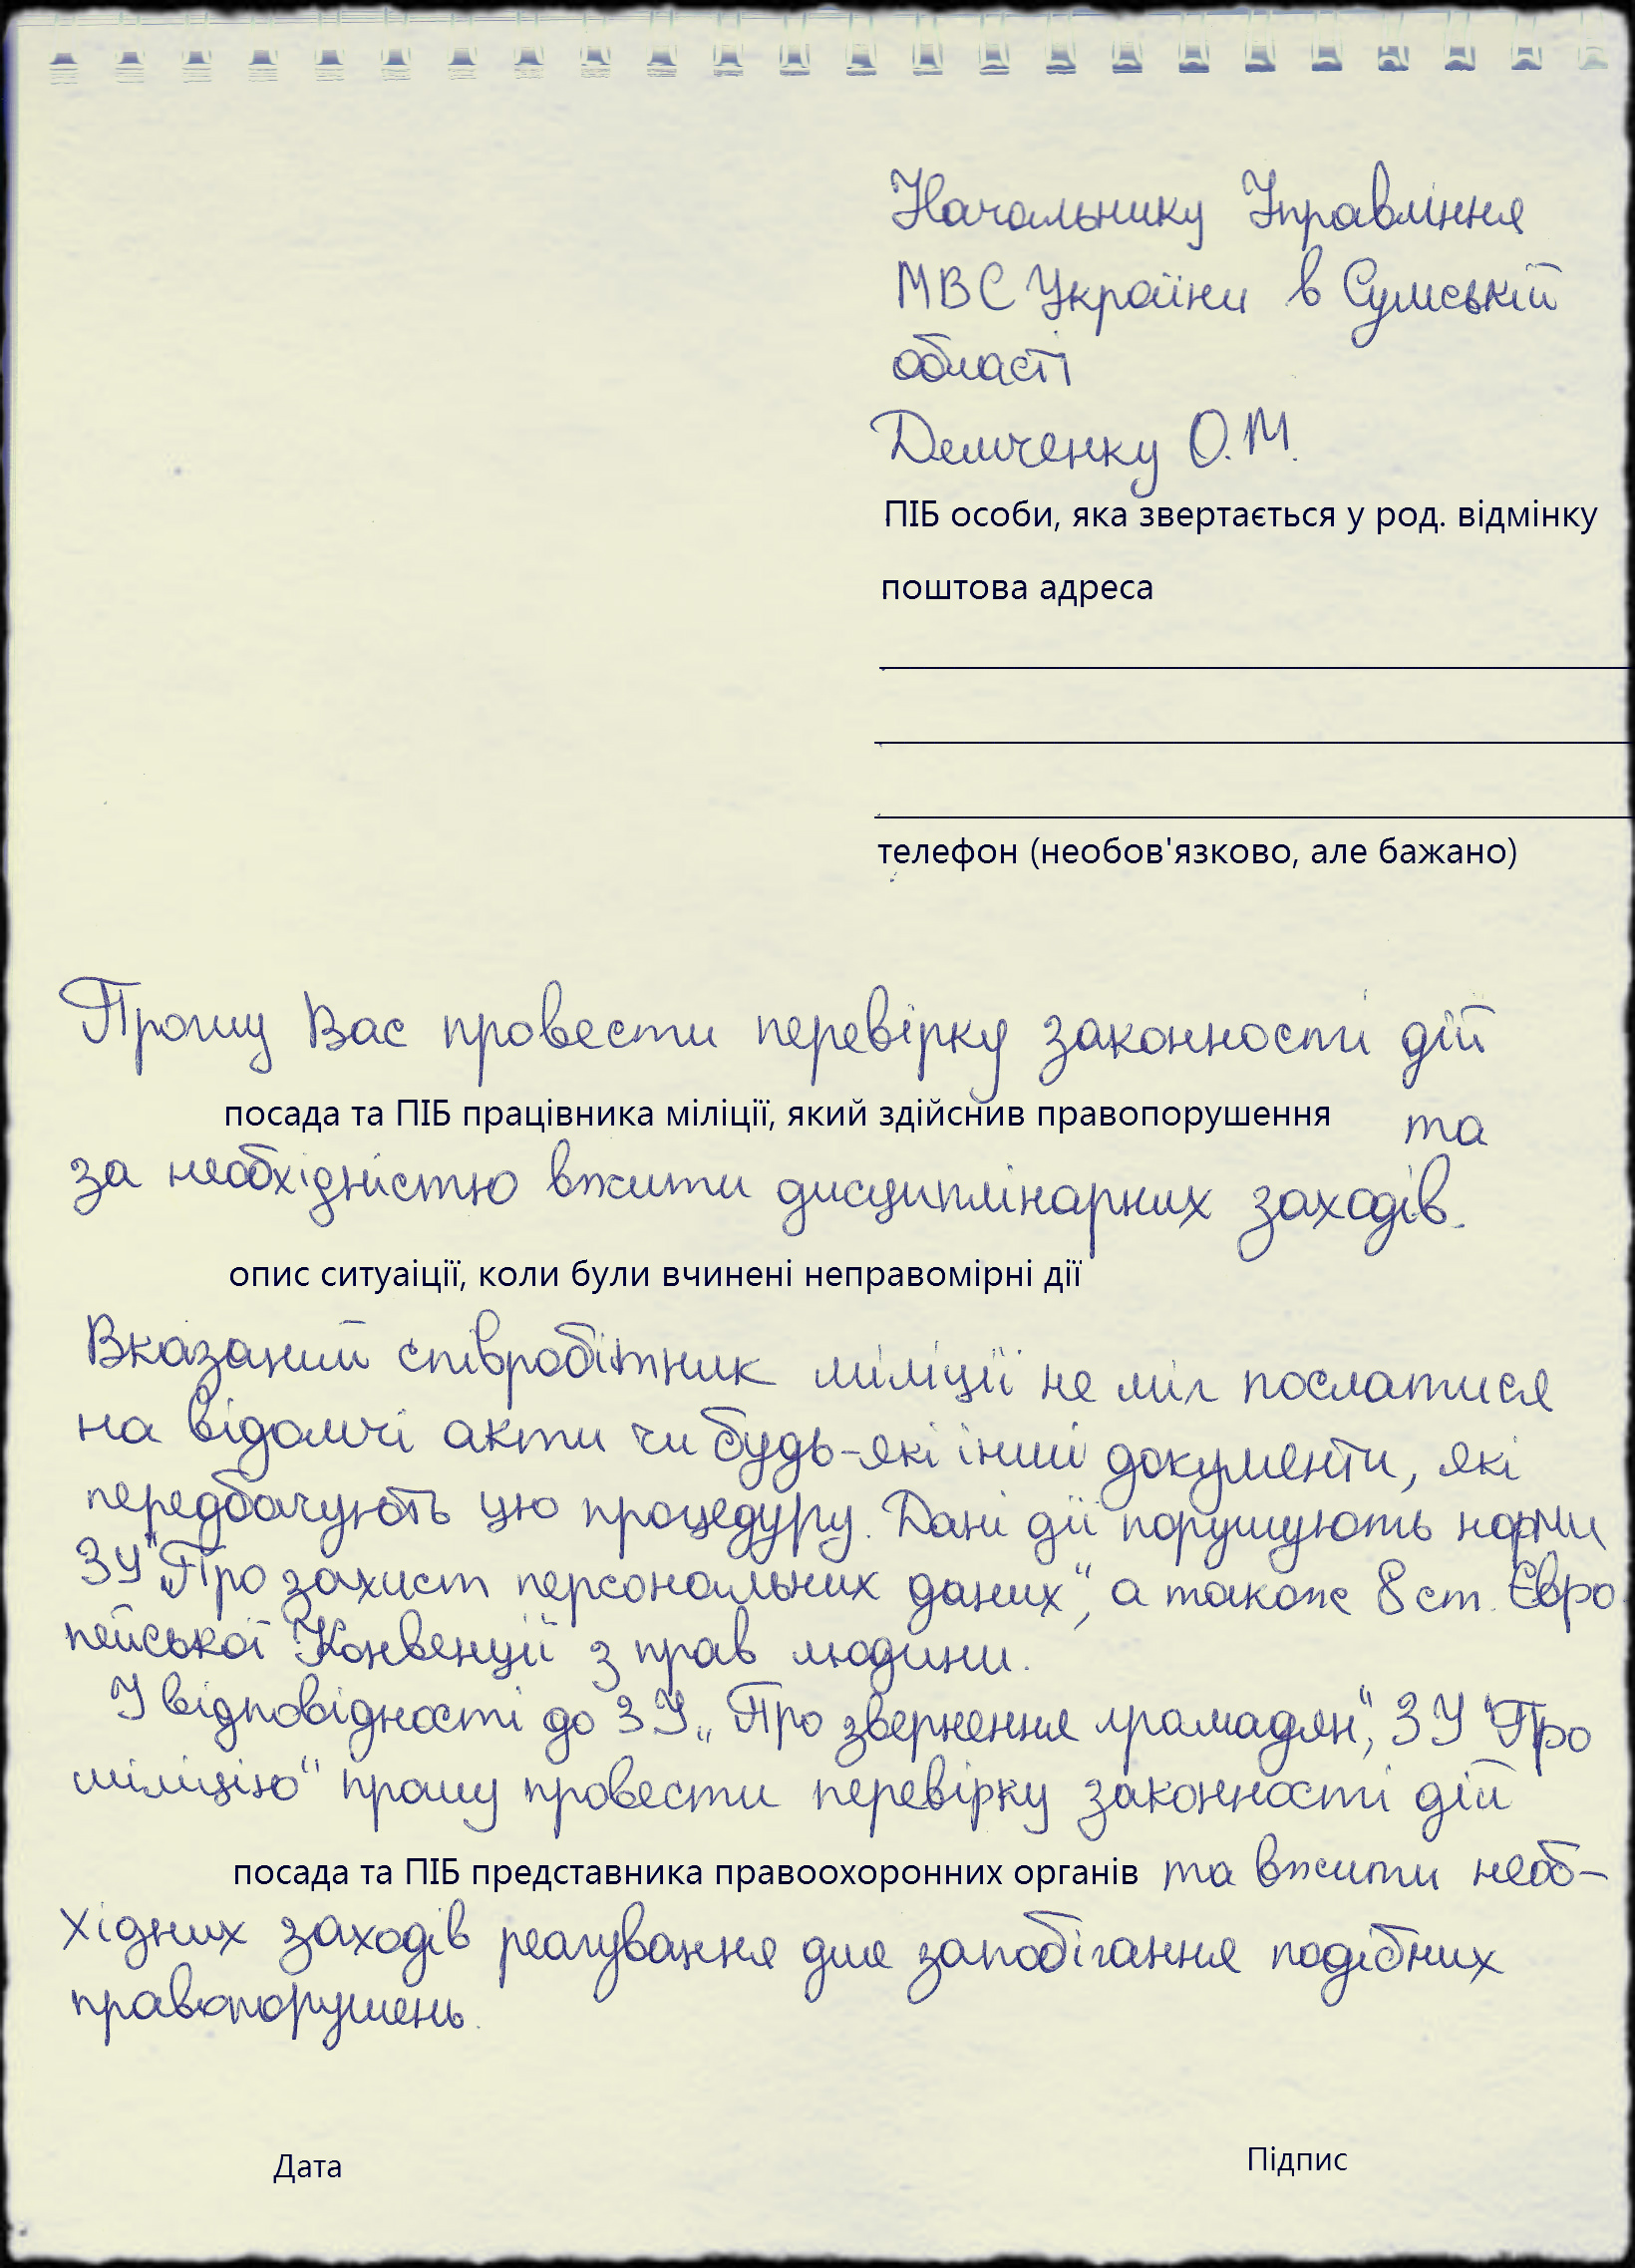 Начальнику Управління
МВС України в Сумській
області
Демченку О.М.
ПІБ особи, яка звертається у род. відмінку
поштова адреса
телефон (необов'язково, але бажано)
Прошу Вас провести перевірку законності дій
посада та ПІБ працівника міліції, який здійснив правопорушення та
за необхідністю вжити дисциплінарних заходів.
опис ситуаіції, коли були вчинені неправомірні дії
Вказаний співробітник міліції не міг послатися
на відомчі акти чи будь-які інші документи, які
передбачують цю процедуру. Дані дії порушують норми
ЗУ "Про захист персональних даних", а також 8 ст. Євро
пейської Конвенції з прав людини.
У відповідності до ЗУ „Про звернення громадян", ЗУ "Про
міліцію" прошу провести перевірку законності дій
посада та ПІБ представника правоохоронних органів та вжити необ-
хідних заходів реагування для запобігання подібних
правопорушень.
Дата Підпис